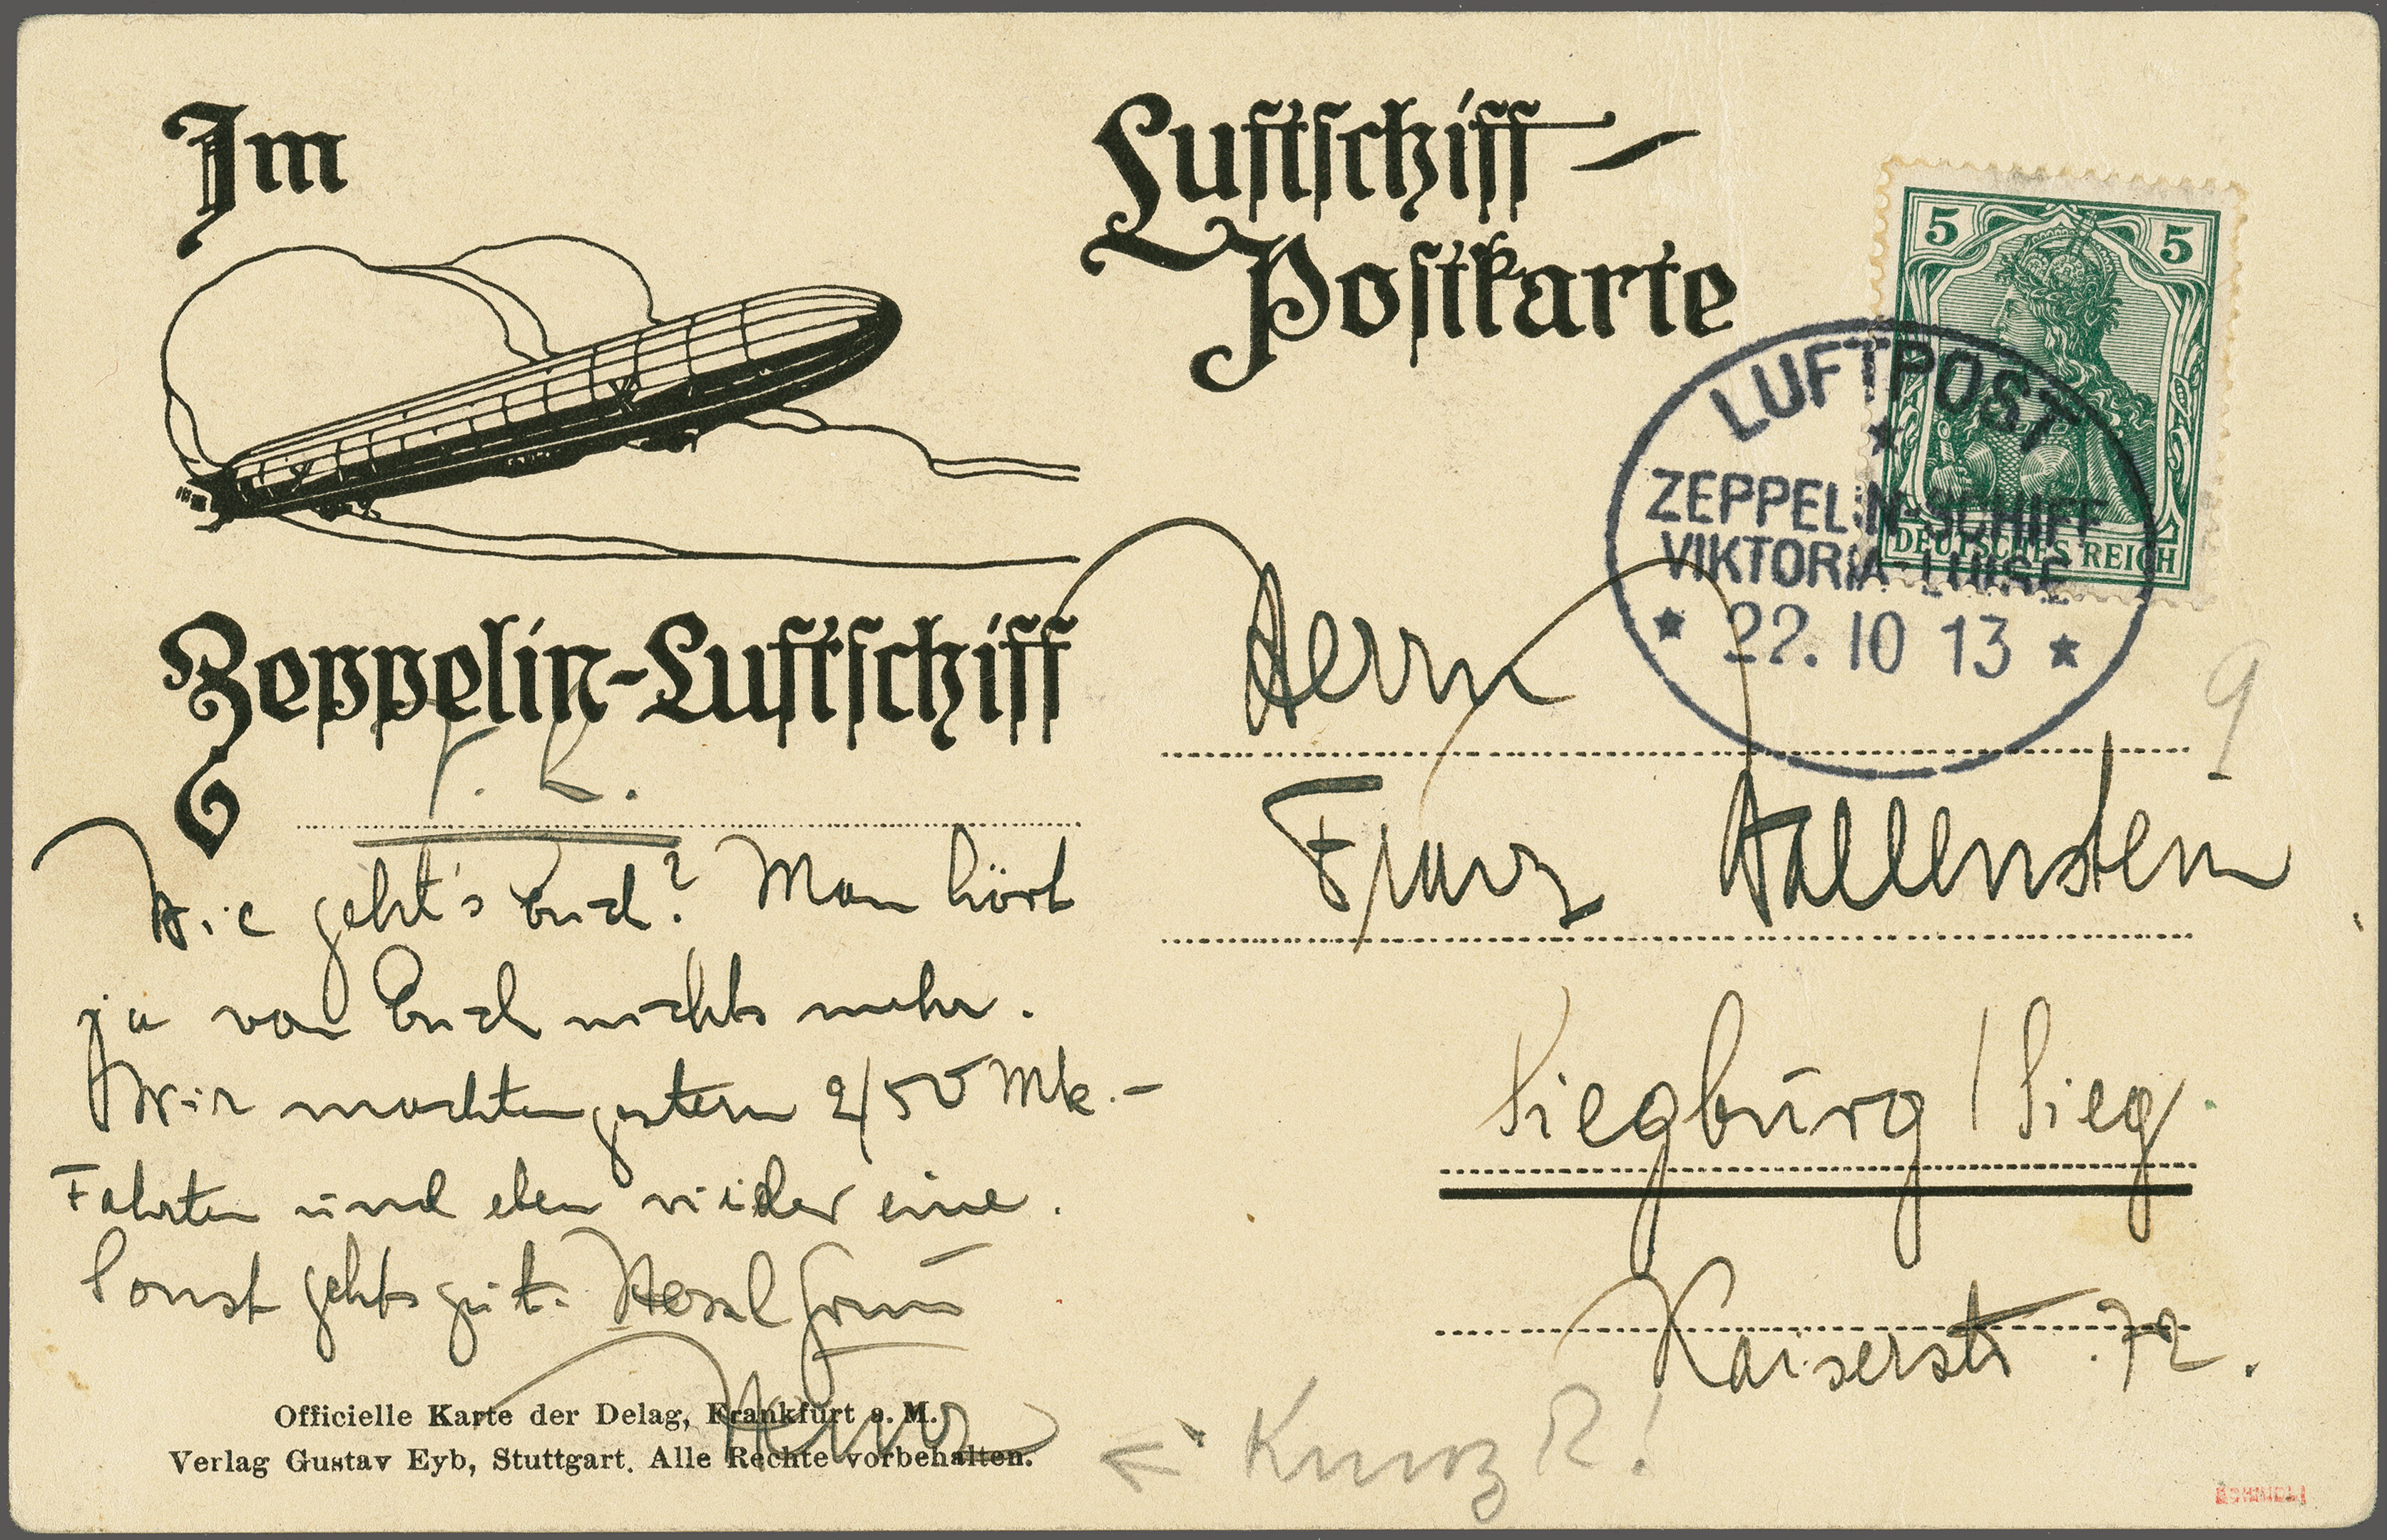 Im
Zeppelin-Luftschiff
Wie geht's Euch? Man hört
ja von Euch nichts mehr.
Wir machten gestern 2/50 Mk.-
Fahrten und eben wieder eine.
Sonst gehts gut.
Officielle Karte der Delag, Frankfurt a. M.
Verlag Gustav Eyb, Stuttgart. Alle Rechte vorbehalten.
Luftschiff-
Postkarte
5 5
DEUTSCHES REICH
LUFTPOST
ZEPPELIN-SCHIFF
VIKTORIA-LUISE
22. 10 13
9
Herrn
Franz Wallenstein
Siegburg / Sieg.
Kaiserstr. 72.